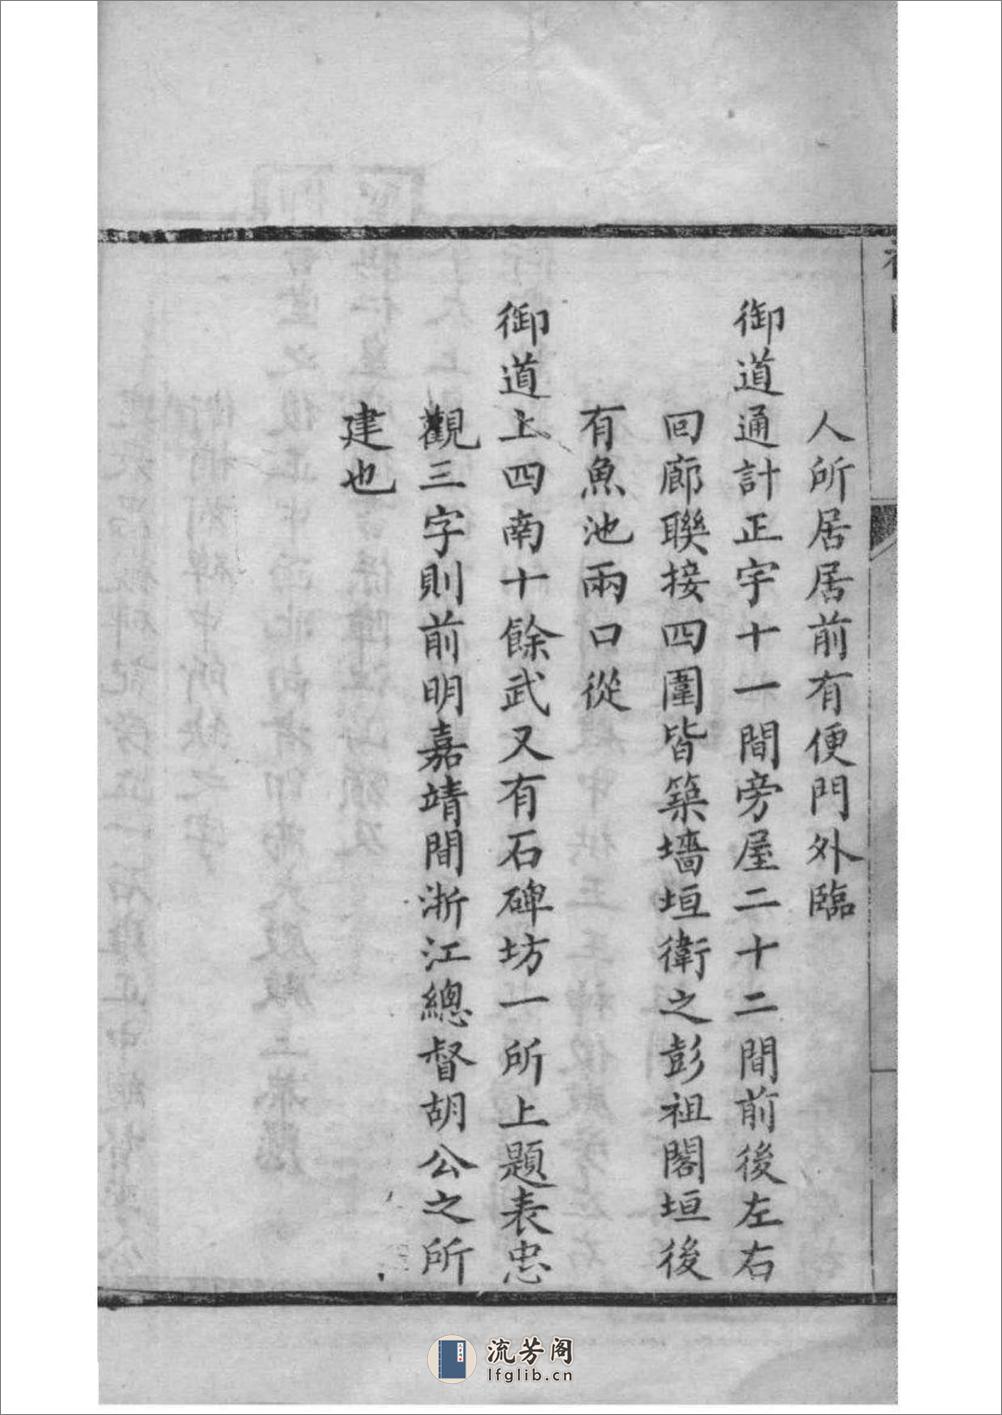 人所居居前有便門外臨
御道通計正宇十一間旁屋二十二間前後左右
回廊聯接四圍皆築墻垣衛之彭祖閣垣後
有魚池兩口從
御道上四南十餘武又有石碑坊一所上題表忠
觀三字則前明嘉靖間浙江總督胡公之所
建也
流芳阁
lfglib.cn